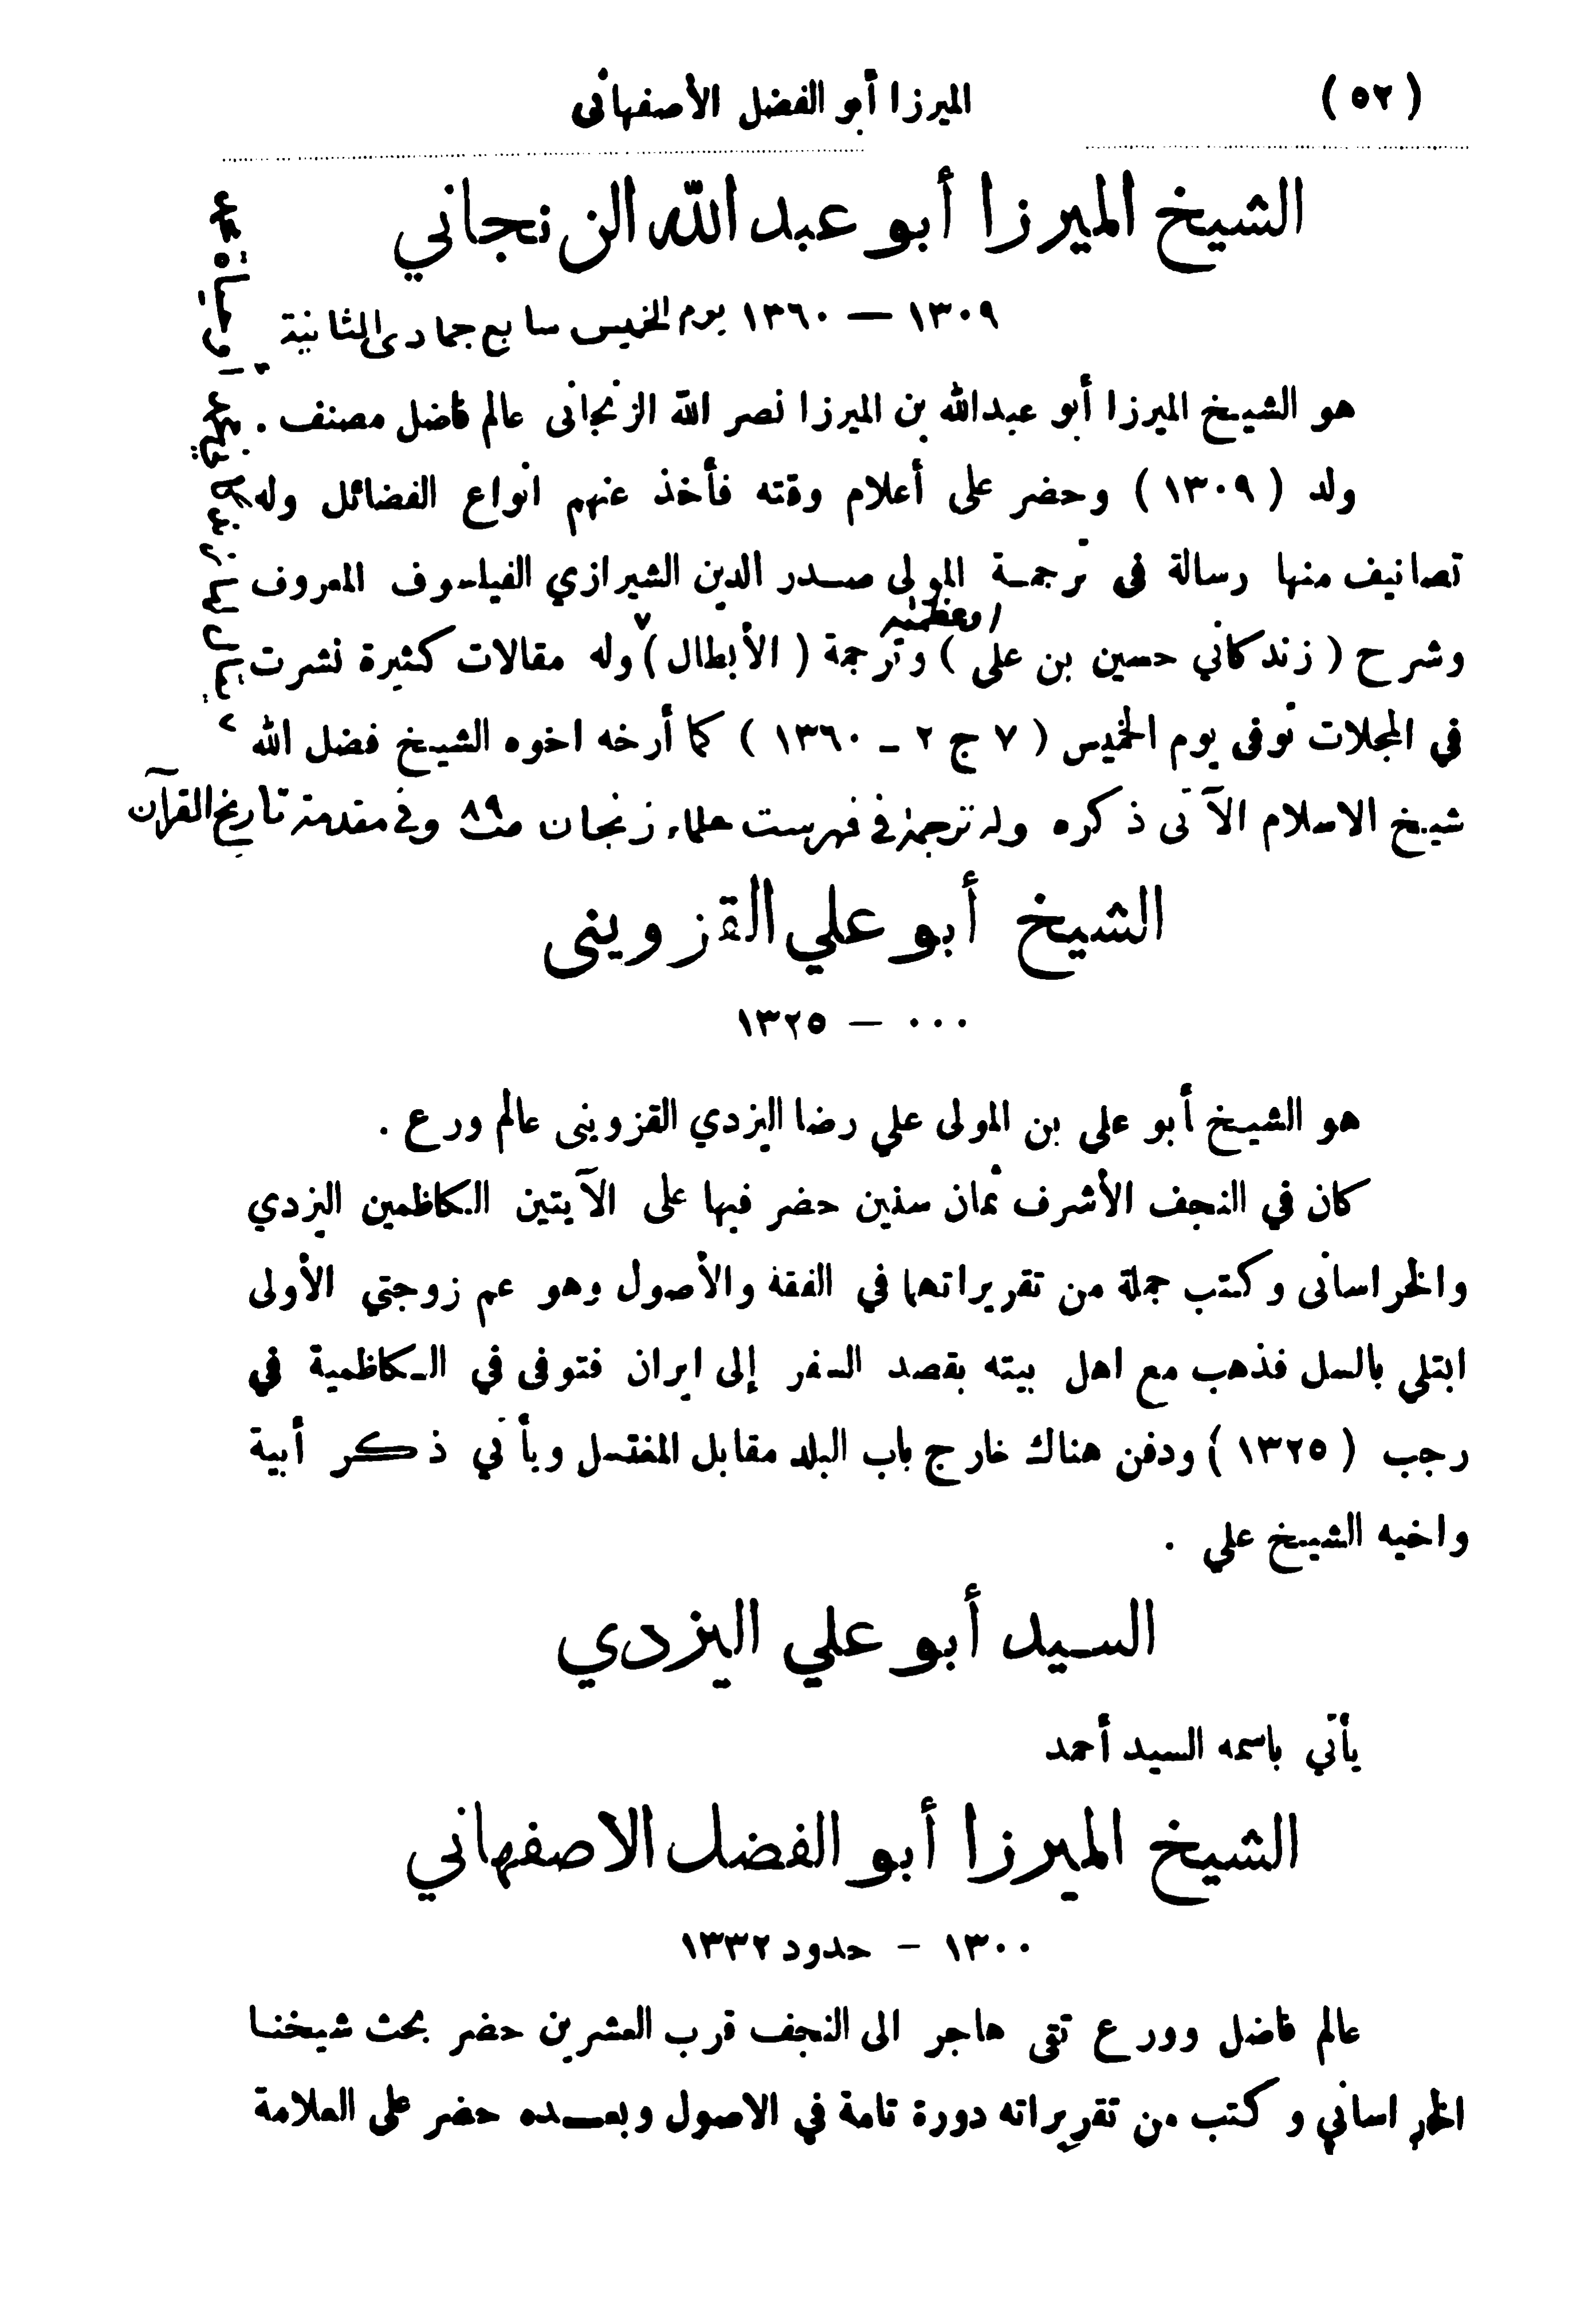 (٥٢) الميرزا أبو الفضل الأصفهانى
الشيخ الميرزا أبو عبد الله الزنجاني
١٣٠٩ — ١٣٦٠ يوم الخميس سابع جمادى الثانية
هو الشيخ الميرزا أبو عبدالله بن الميرزا نصر الله الزنجانى عالم فاضل مصنف .
ولد ( ١٣٠٩ ) وحضر على أعلام وقته فأخذ عنهم انواع الفضائل وله
تصانيف منها رسالة فى ترجمة المولى صدر الدين الشيرازي الفيلسوف المعروف
وشرح ( زندكاني حسين بن على ) وترجمة ( الأبطال ) وله مقالات كثيرة نشرت
في المجلات توفى يوم الخميس ( ٧ ج ٢ ـ ١٣٦٠ ) كما أرخه اخوه الشيخ فضل الله
شيخ الاسلام الآتى ذكره وله ترجمة في فهرست علماء زنجان ٨٩ وفي مقدمة تاريخ القرآن
الشيخ أبو علي القزوينى
٠٠٠ — ١٣٢٥
هو الشيخ أبو علي بن المولى علي رضا اليزدي القزوينى عالم ورع .
كان في النجف الأشرف ثمان سنين حضر فيها على الآيتين الكاظمين اليزدي
والخراسانى وكتب جملة من تقريراتهما في الفقه والأصول وهو عم زوجتي الأولى
ابتلي بالسل فذهب مع اهل بيته بقصد السفر إلى ايران فتوفى في الكاظمية في
رجب ( ١٣٢٥ ) ودفن هناك خارج باب البلد مقابل المغتسل ويأتي ذكر أبية
واخيه الشيخ علي .
السيد أبو علي اليزدي
يأتي باسمه السيد أحمد
الشيخ الميرزا أبو الفضل الاصفهاني
١٣٠٠ - حدود ١٣٣٢
عالم فاضل وورع تقى هاجر الى النجف قرب العشرين حضر بحث شيخنا
الخراساني وكتب من تقريراته دورة تامة في الاصول وبعده حضر على العلامة